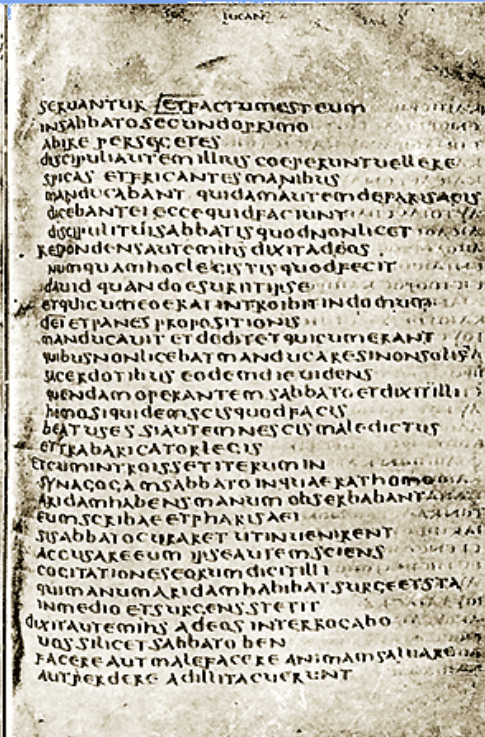 SEC LUCAN
SERUANTUR ET FACTUM EST EUM
IN SABBATO SECUNDO PRIMO
ABIRE PER SEGETES
DISCIPULI AUTEM ILLIUS COEPERUNT UELLERE
SPICAS ET FRICANTES MANIBUS
MANDUCABANT QUIDAM AUTEM DE FARISAEIS
DICEBANT EI ECCE QUID FACIUNT
DISCIPULI TUI SABBATIS QUOD NON LICET
RESPONDENS AUTEM IHS DIXIT AD EOS
NUMQUAM HOC LEGISTIS QUOD FECIT
DAUID QUANDO ESURIIT IPSE
ET QUI CUM EO ERAT INTROIBIT IN DOMUM
DEI ET PANES PROPOSITIONIS
MANDUCAUIT ET DEDIT ET QUI CUM ERANT
QUIBUS NON LICEBAT MANDUCARE SI NON SOLIS
SACERDOTIBUS EODEM DIE UIDENS
QUENDAM OPERANTEM SABBATO ET DIXIT ILLI
HOMO SI QUIDEM SCIS QUOD FACIS
BEATUS ES SI AUTEM NESCIS MALEDICTUS
ET TRABARICATOR LEGIS
ET CUM INTROISSET ITERUM IN
SYNAGOGAM SABBATO IN QUA ERAT HOMO
ARIDAM HABENS MANUM OBSERBABANT
EUM SCRIBAE ET PHARISAEI
SI SABBATO CURARET UT INUENIRENT
ACCUSARE EUM IPSE AUTEM SCIENS
COGITATIONES EORUM DICIT ILLI
QUI MANUM ARIDAM HABEBAT SURGE ET STA
IN MEDIO ET SURGENS STETIT
DIXIT AUTEM IHS AD EOS INTERROGABO
UOS SI LICET SABBATO BEN
FACERE AUT MALE FACERE ANIMAM SALUARE
AUT PERDERE AD ILLI TACUERUNT